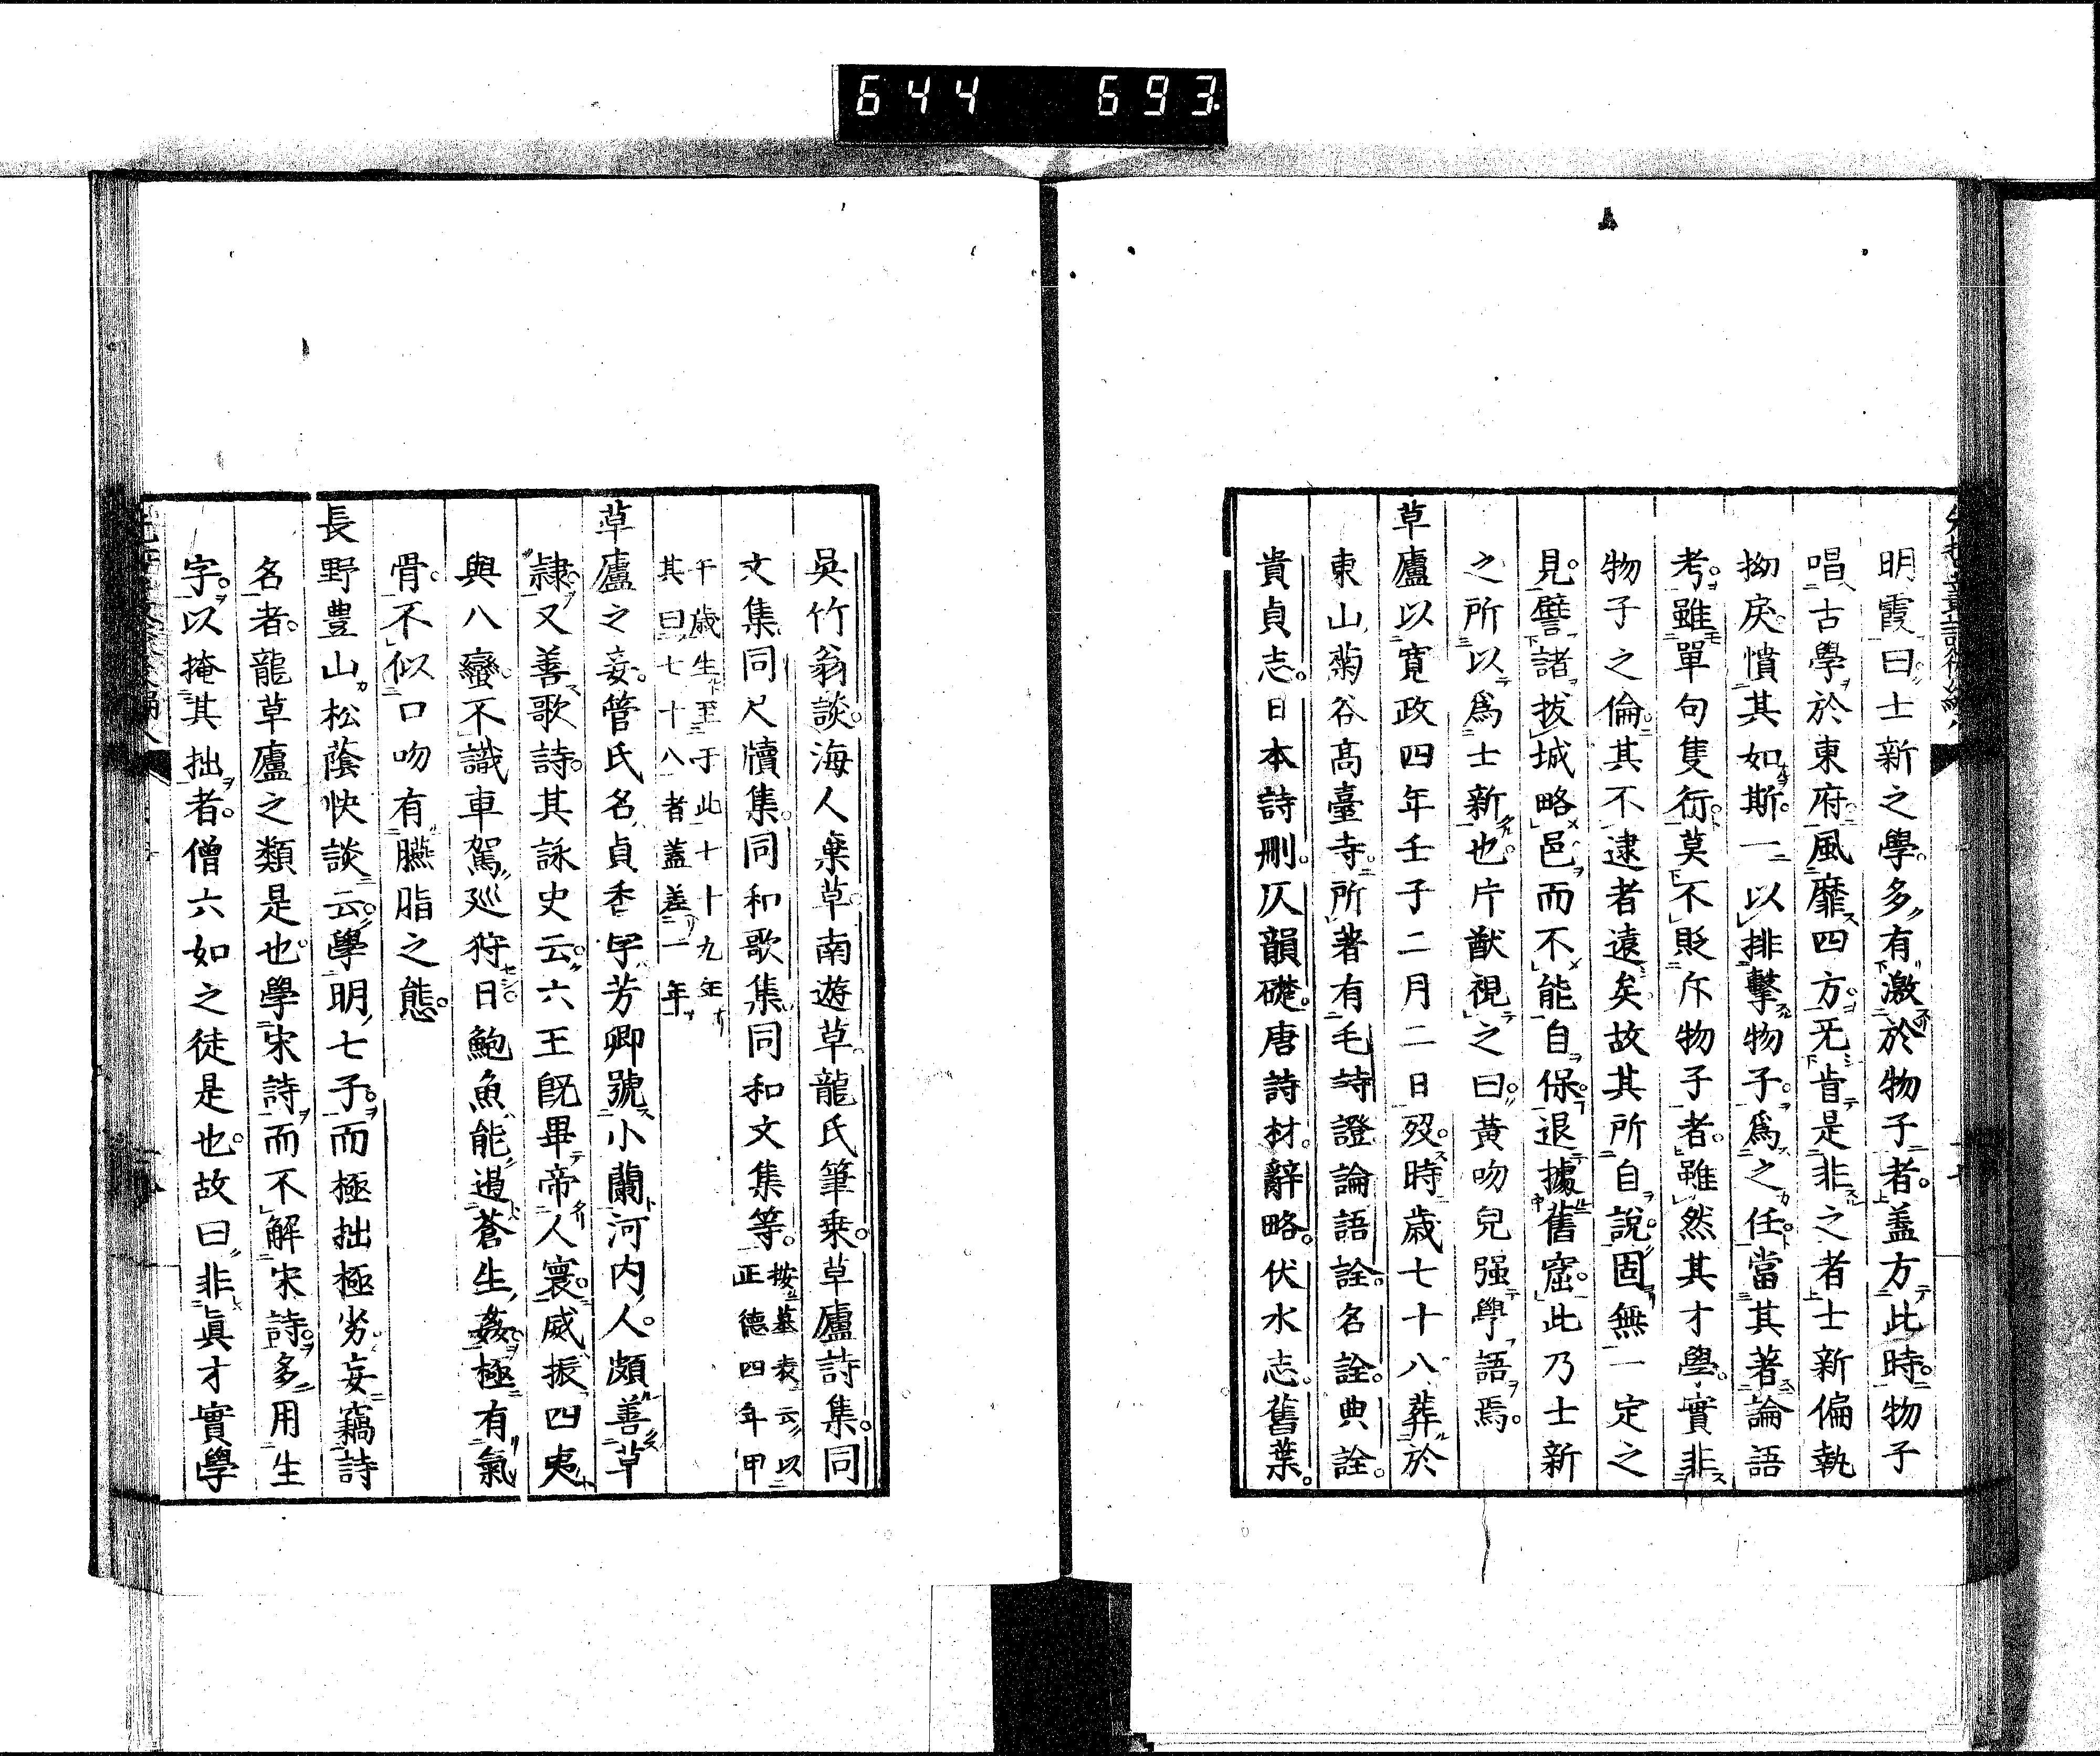 644 693
明霞曰士新之學多有激於物子者。蓋方此時。物子
唱古學於東府。風靡四方。无肯是非之者。士新偏執
拗戾。憤其如斯。一以排擊物子。爲之任。當其著論語
考。雖單句隻行。莫不貶斥物子者。雖然其才學。實非
物子之倫。其不逮者遠矣。故其所自說。固無一定之
見。譬諸拔城略邑。而不能自保。退據舊窟。此乃士新
之所以爲士新也。片猷視之曰。黃吻兒强學語焉。
草廬以寬政四年壬子二月二日歿。時歲七十八。葬於
東山菊谷高臺寺。所著有毛詩證。論語詮。名詮。典詮。
貴貞志。日本詩刪。仄韻礎。唐詩材。辭略。伏水志。舊葉。
吳竹翁談。海人棄草。南遊草。龍氏筆乘。草廬詩集。同
文集。同尺牘集。同和歌集。同和文集等。按墓表云以正德四年甲
午歲生至于此十十九年其曰七十八者蓋差一年
草廬之妾。管氏名貞香字芳卿號小蘭河內人。頗善草
隷。又善歌詩。其詠史云。六王旣畢帝人寰。威振四夷
與八蠻。不識車駕巡狩日。鮑魚能遏蒼生姦。極有氣
骨。不似口吻有臙脂之態。
長野豊山松蔭快談云。學明七子。而極拙極劣。妄竊詩
名者。龍草廬之類是也。學宋詩而不解宋詩。多用生
字。以掩其拙者。僧六如之徒是也。故曰非眞才實學